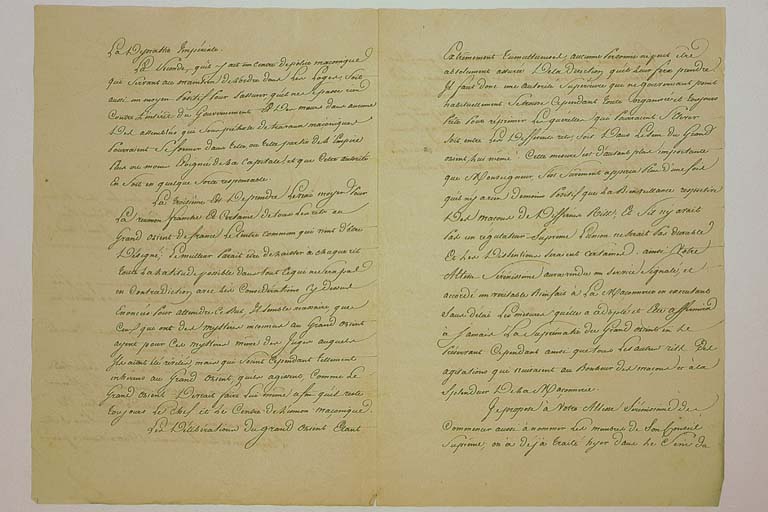 La Dynastie Impériale.
La Seconde, qu'il y ait un centre de police maçonnique
que Servant au maintien de l'ordre dans les Loges, Soit
aussi un moyen Positif Pour S'assurer qu'il ne Se passe rien
Contre L'intérêt du Gouvernement Et De moins dans aucune
Des assemblées que Sous prétexte de travaux maçonniques
Pourraient Se former dans telle ou telle partie de L'Empire
Plus ou moins Eloignée de La Capitale, et que Cette autorité
En Soit en quelque Sorte responsable.
La troisième Est De prendre Le vrai moyen Pour
La réunion franche Et Certaine de tous Les rits au
Grand Orient de france Le Centre commun qui vient d'être
Désigné; Le meilleur Parait être de Laisser à chaque rit
toute La Latitude possible dans tout Ce qui ne Sera pas
en Contradiction avec Les Considérations Cy dessus
Enoncées Pour atteindre Ce But, Il Semble nécessaire que
Ceux qui ont des mystères inconnus au Grand Orient
ayent pour Ces mystères mêmes des Juges auxquels
Ils aient été révélés mais qui Soient Cependant tellement
inhérens au Grand Orient, qu'ils agissent, Comme Le
Grand Orient Devrait faire Lui même afin qu'il reste
toujours Le Chef et Le Centre de L'union maçonnique.
Les Délibérations du grand Orient Etant
Extrêmement tumultueuses, aucune Personne ne peut être
absolument assurée De la Direction qu'il Leur fera prendre
Il faut donc une autorité Supérieure que ne gouvernant point
habituellement Se trouve Cependant toute Organisée et toujours
Prête Pour réprimer les querelles qui Pourraient S'élever
Soit entre Les Différents rits, Soit Dans Le Sein du Grand
Orient Lui même. Cette mesure est d'autant plus importante
que Monseigneur Doit Surement appercu Plus d'une fois
qu'il n'y a rien De moins Positif que La Bienveillance respective
Des maçons de Différens Rits, Et S'il n'y avait
Pas un régulateur Suprême L'union ne Serait Pas durable
Et Les Dissentions Seraient Certaines. ainsi Votre
Altesse Sérénissime aura rendu un Service Signalé, et
accordé un véritable Bienfait à La Maçonnerie en exécutant
Sans délai Les mesures quelle a adoptée et Elle affermira
à Jamais La Suprématie du Grand Orient en Le
préservant Cependant ainsi que tous Les autres rits Des
agitations qui nuiraient au Bonheur des maçons et à La
Splendeur De La Maçonnerie.
Je propose à Votre Altesse Sérénissime de
Commencer aussi à nommer Les membres de Son Conseil
Suprême; on a déjà traité hyer dans Le Sein du